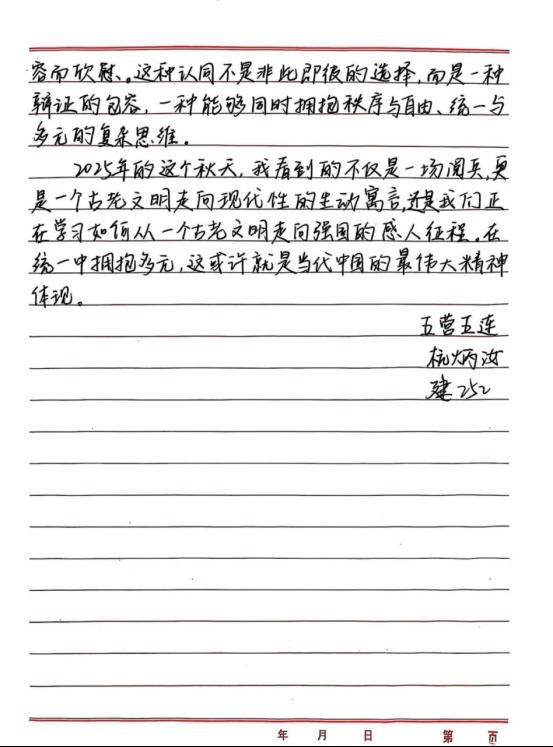 容而欣慰。这种认同不是非此即彼的选择,而是一种
辩证的包容,一种能够同时拥抱秩序与自由、统一与
多元的复杂思维。
2025年的这个秋天,我看到的不仅是一场阅兵,更
是一个古老文明走向现代性的生动寓言,还是我们正
在学习如何从一个古老文明走向强国的感人征程。在
统一中拥抱多元,这或许就是当代中国的最伟大精神
体现。
五营五连
杭炳汝
建252
年 月 日 第 页